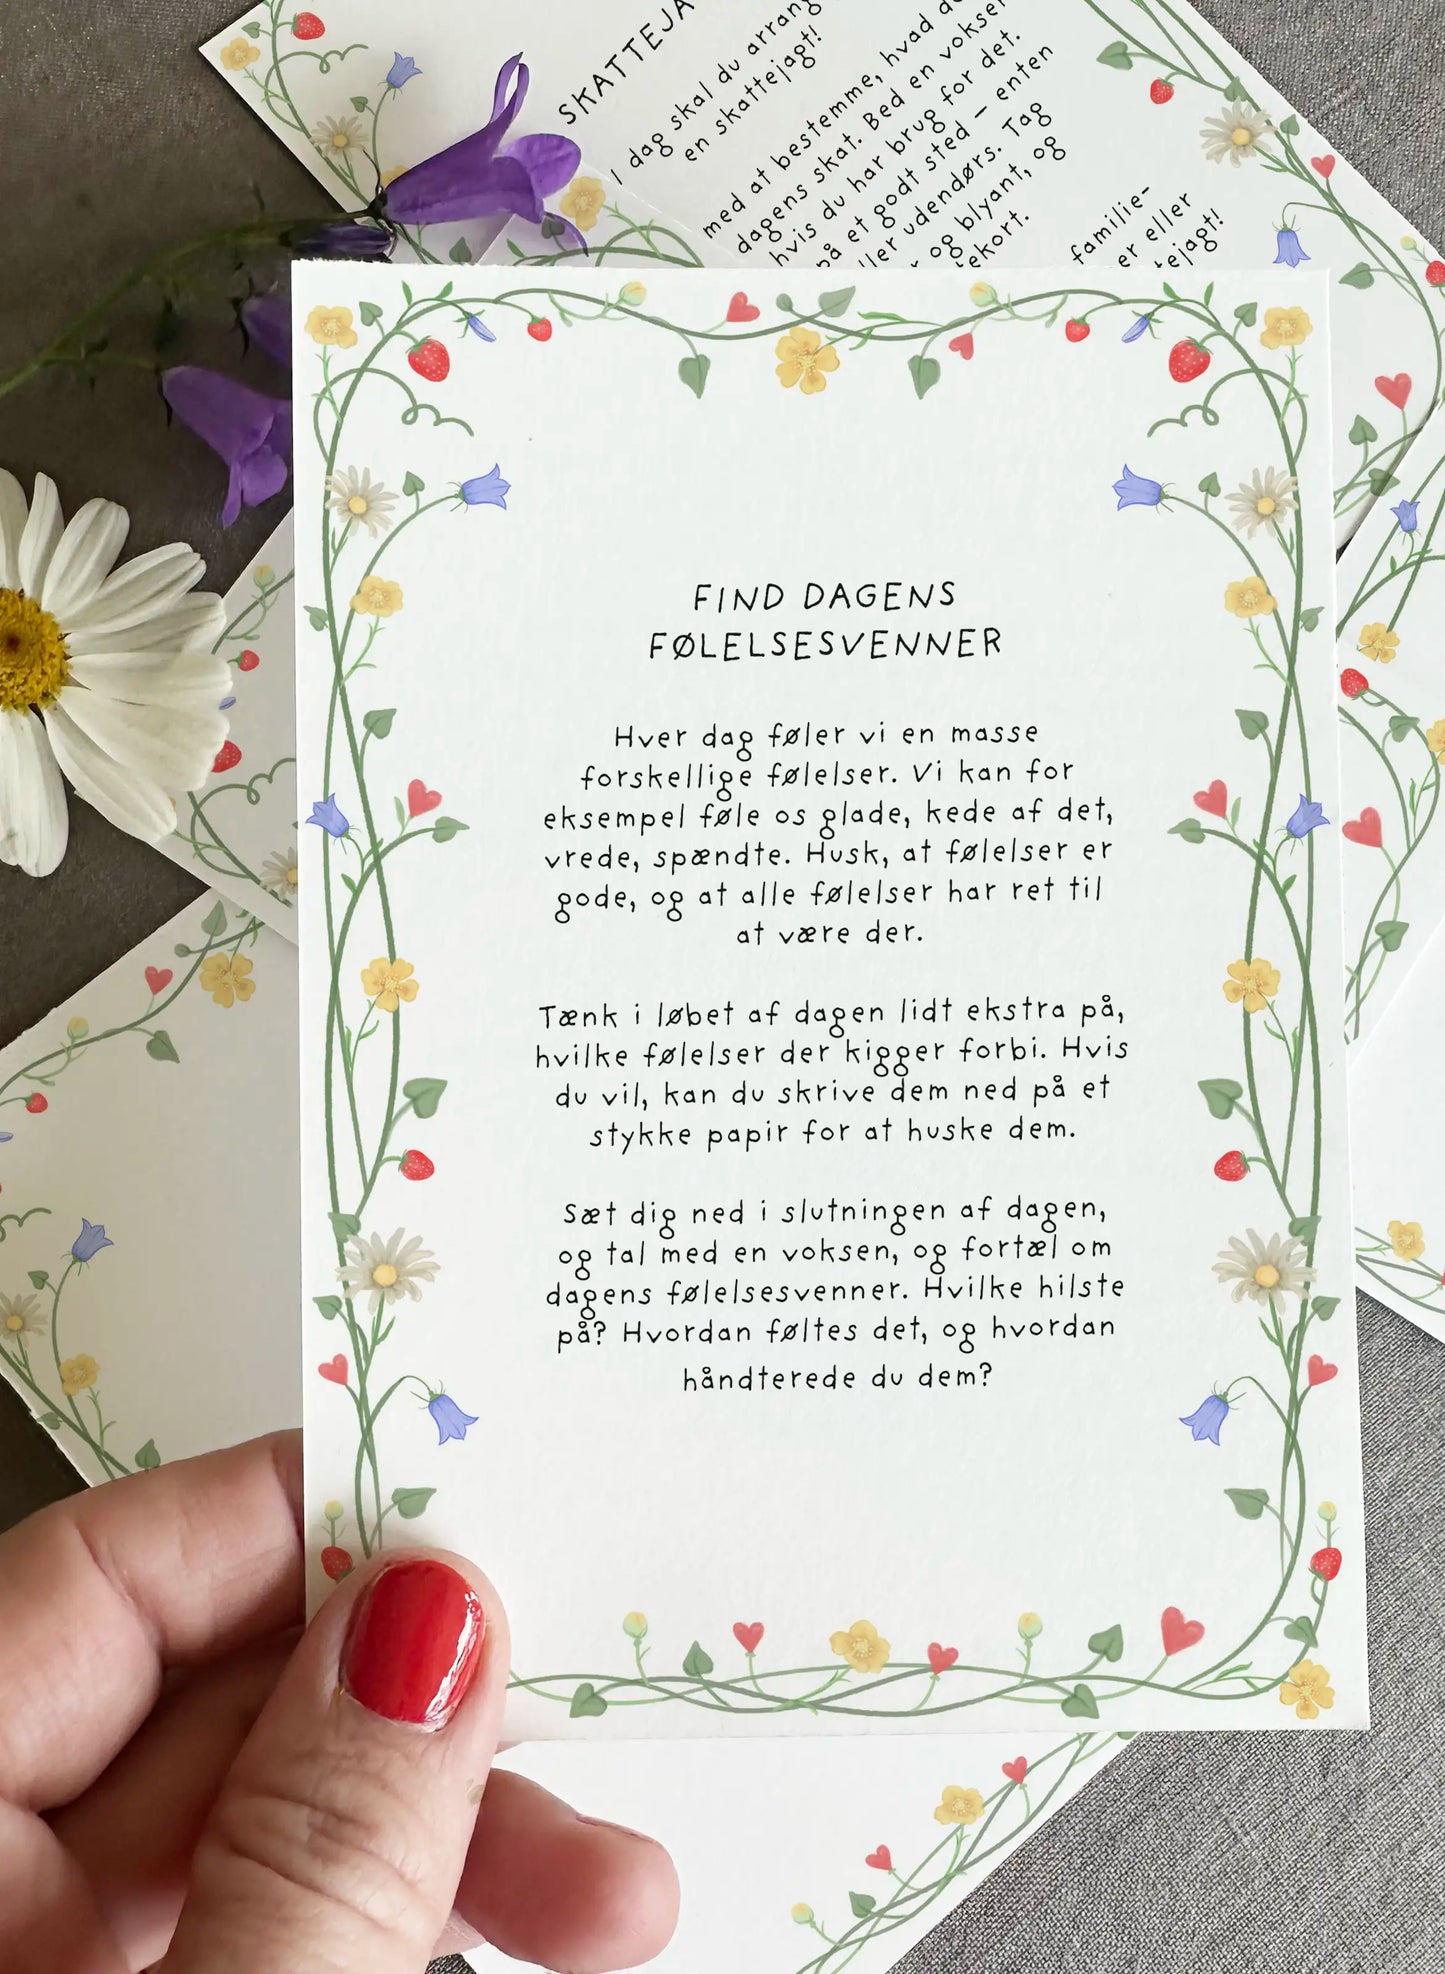 SKATTEJA
I dag skal du arrang
en skattejagt!
med at bestemme, hvad
dagens skat. Bed en voksen
hvis du har brug for det.
på et godt sted – enten
ller udendørs. Tag
og blyant, og
ekort.
familie-
er eller
tejagt!
FIND DAGENS
FØLELSESVENNER
Hver dag føler vi en masse
forskellige følelser. Vi kan for
eksempel føle os glade, kede af det,
vrede, spændte. Husk, at følelser er
gode, og at alle følelser har ret til
at være der.
Tænk i løbet af dagen lidt ekstra på,
hvilke følelser der kigger forbi. Hvis
du vil, kan du skrive dem ned på et
stykke papir for at huske dem.
Sæt dig ned i slutningen af dagen,
og tal med en voksen, og fortæl om
dagens følelsesvenner. Hvilke hilste
på? Hvordan føltes det, og hvordan
håndterede du dem?